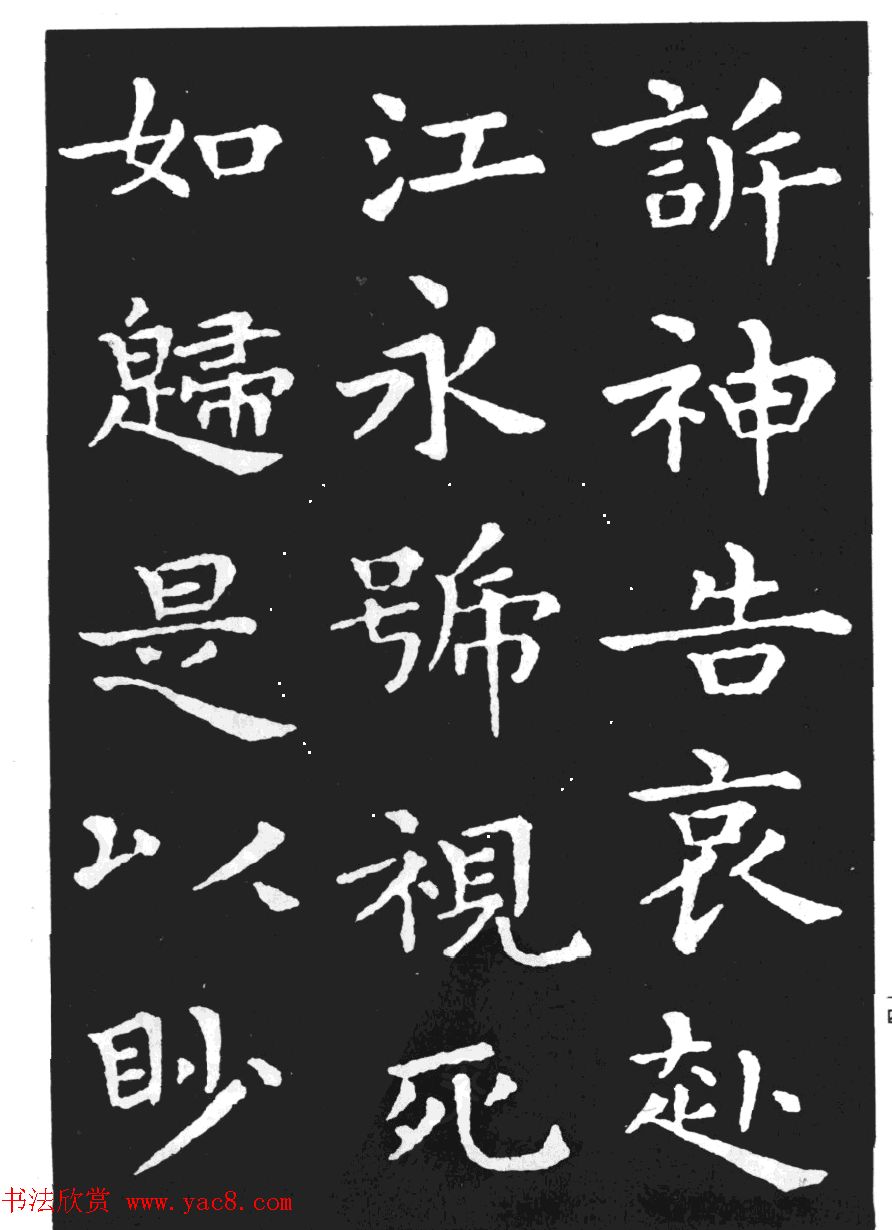 訴神告哀赴
江永號視死
如歸是以眇
书法欣赏 www.yac8.com